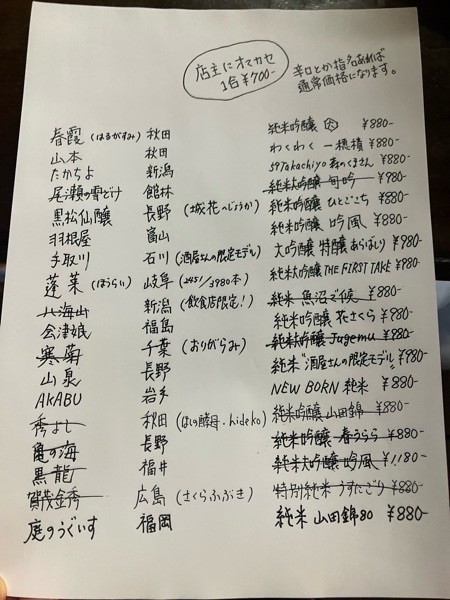 店主にオマカセ
1合¥700-
辛口とか指名あれば
通常価格になります。
春霞(はるがすみ) 秋田 純米吟醸 ¥880-
山本 秋田 わくわく 一穂積 ¥880-
たかちよ 新潟 59Takachiyo 森のくまさん ¥880-
尾瀬の雪どけ 館林 純米大吟醸 旬吟 ¥980-
黒松仙醸 長野(城花 べじょうか) 純米吟醸 ひとごこち ¥880-
羽根屋 富山 純米吟醸 吟風 ¥880-
手取川 石川(酒屋さんの限定モデル) 大吟醸 特醸あらばしり ¥980-
蓬莱(ほうらい) 岐阜(2451/3980本) 純米大吟醸 THE FIRST TAKE ¥980-
八海山 新潟(飲食店限定!) 純米 魚沼で候 ¥880-
会津娘 福島 純米吟醸 花さくら ¥980-
寒菊 千葉(おりがらみ) 純米大吟醸 Jugemu ¥980-
山泉 長野 純米"酒屋さんの限定モデル" ¥980-
AKABU 岩手 NEW BORN 純米 ¥880-
秀よし 秋田(ほしの酵母・hideko) 純米吟醸 山田錦 ¥880-
亀の海 長野 純米吟醸 春うらら ¥880-
黒龍 福井 純米大吟醸 吟風 ¥1,180-
賀茂金秀 広島(さくらふぶき) 特別純米 うすにごり ¥880-
庭のうぐいす 福岡 純米 山田錦80 ¥880-